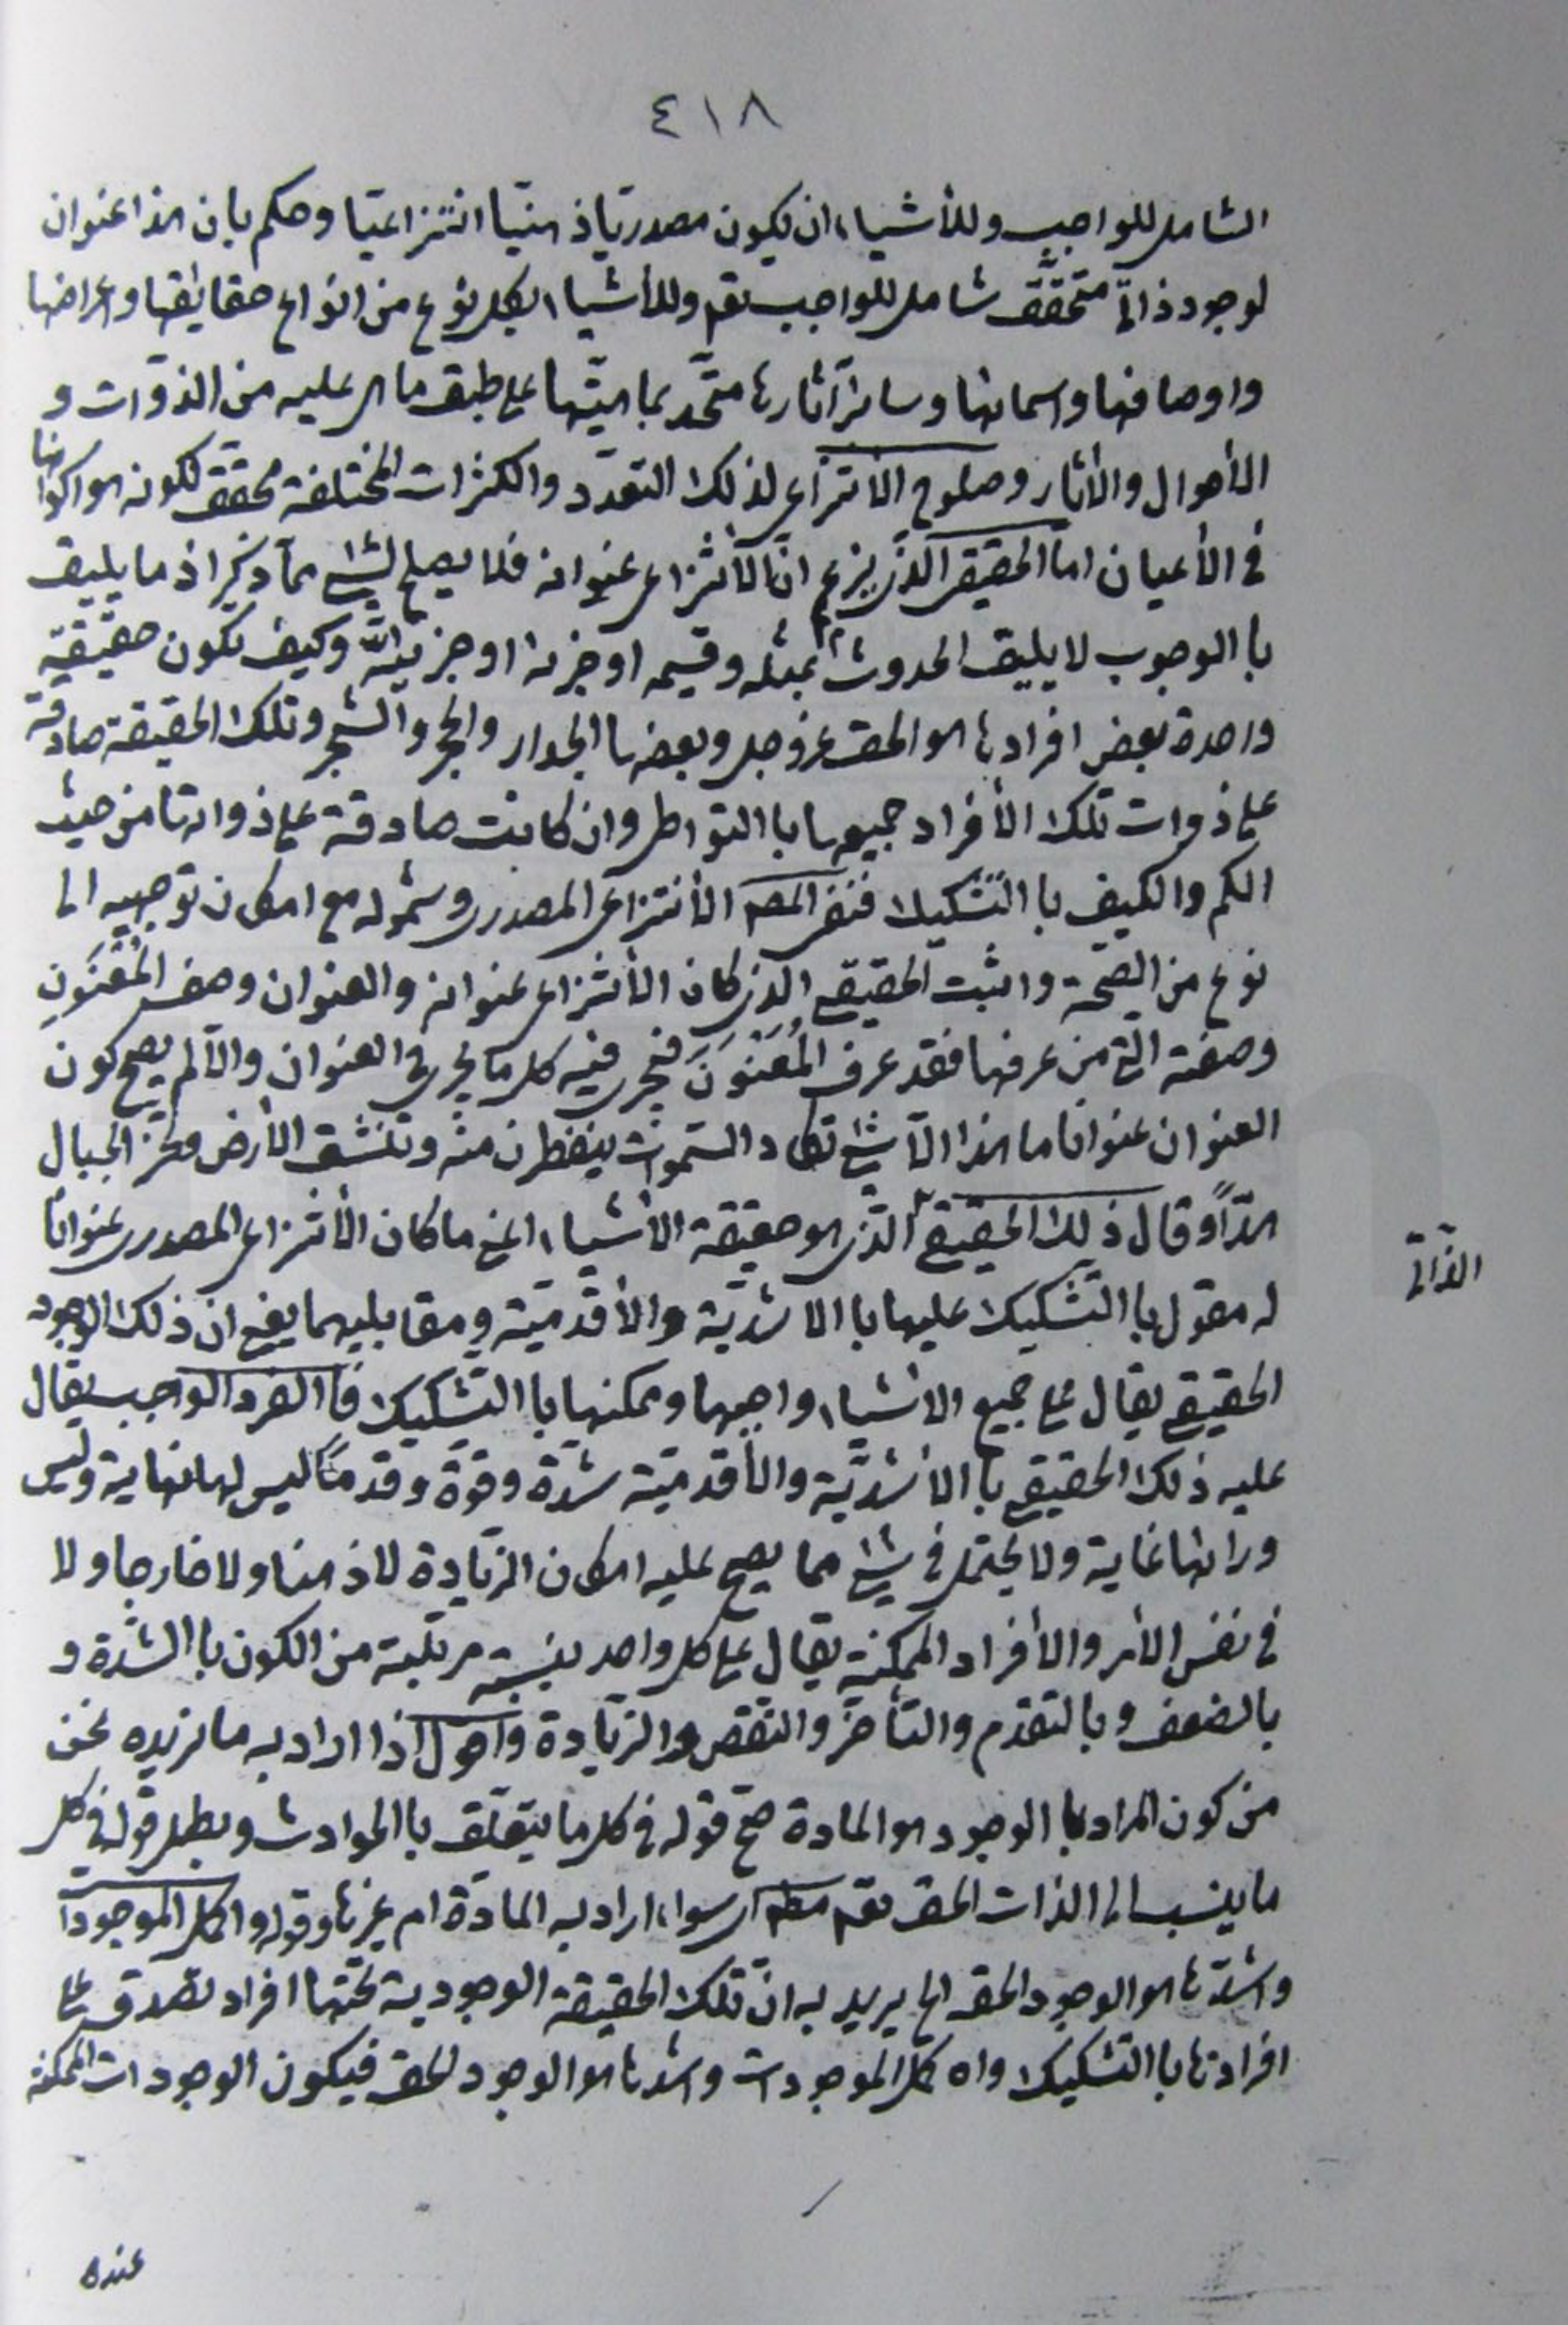 ٤١٨
الشامل للواجب وللأشياء ان يكون مصدريّا ذهنيّا انتزاعيّا وحكم بان هذا عنوان
لوجود ذاتّي متحقّق شامل للواجب تعٓ وللأشياء بكل نوع من انواع حقايقها واعراضها
واوصافها واسمائها وسائر آثارها متّحد بماهيّتها على طبق ما هى عليه من الذوّات و
الأحوال والأثار وصلوح الأنتزاعى لذلك التعدّد والكثرات المختلفة محقق لكونه هو اكوانها
فى الأعيان امّا الحقيقى الّذى يزعم انّ الأنتزاعى عنوانه فلا يصلح لشئ ممّا ذكر اذ ما يليق
با الوجوب لا يليق الحدوث بمثله وقسيمه او جزئه او جزئيّته وكيف تكون حقيقيّة
واحدة بعض افرادها هو الحق عزوجل وبعضها الجدار والحجر والشجر وتلك الحقيقة صادقة
على ذوات تلك الأفراد جميعها با التواطى وان كانت صادقة على ذواتها من حيث
الكم والكيف با التشكيك فنفى المصٓ الأنتزاعى المصدرى وشموله مع امكان توجيهه الى
نوع من الصّحّة واثبت الحقيقى الّذى كان الأنتزاعى عنوانه والعنوان وصف المُعَنوَنِ
وصفته الّتى من عرفها فقد عرف المُعَنوَنَ فيجرى فيه كل ما يجرى فى العنوان والّا لم يصح كون
العنوان عنوانا ما هذا الّا شئ تكاد السّموات ينفطرن منه وتنشق الأرض وتخر الجبال
هدّاً وقال ذلك الحقيقى الّذى هو حقيقة الأشياء اعنى ما كان الأنتزاعى المصدرى عنوانًا
الذّاتى
له مقول با التّشكيك عليها با الاشديّة والأقدميّة ومقابليهما يعنى ان ذلك الوجود
الحقيقى يقال على جميع الاشياء واجبها وممكنها با التشكيك فا الفرد الواجب يقال
عليه ذلك الحقيقى با الأشديّة والأقدميّة شدّة وقوّة وقدمًا ليس لها نهاية وليس
ورائها غاية ولا يحتمل فى شئ مما يصح عليه امكان الزيادة لا ذهنا ولا خارجا ولا
فى نفس الأمر والأفراد الممكنة يقال على كل واحد بنسبة مرتبته من الكون با الشدّة و
بالضعف وبالتقدم والتأخر والنقص والزيادة واقول اذا اراد به ما نريده نحن
من كون المراد با الوجود هو المادة صحّ قوله فى كل ما يتعلّق با الحوادث وبطل قوله فى كل
ما ينسب الى الذات الحق تعٓ مطٓ اى سواء اراد به المادّة ام غيرها وقوله واكمل الموجودات
واشدّها هو الوجود الحق الخ يريد به انّ تلك الحقيقة الوجودية تحتها افراد تصدق على
افرادها با التشكيك وان اكمل الموجودات واشدها هو الوجود الحق فيكون الوجودات الممكنة
عنده